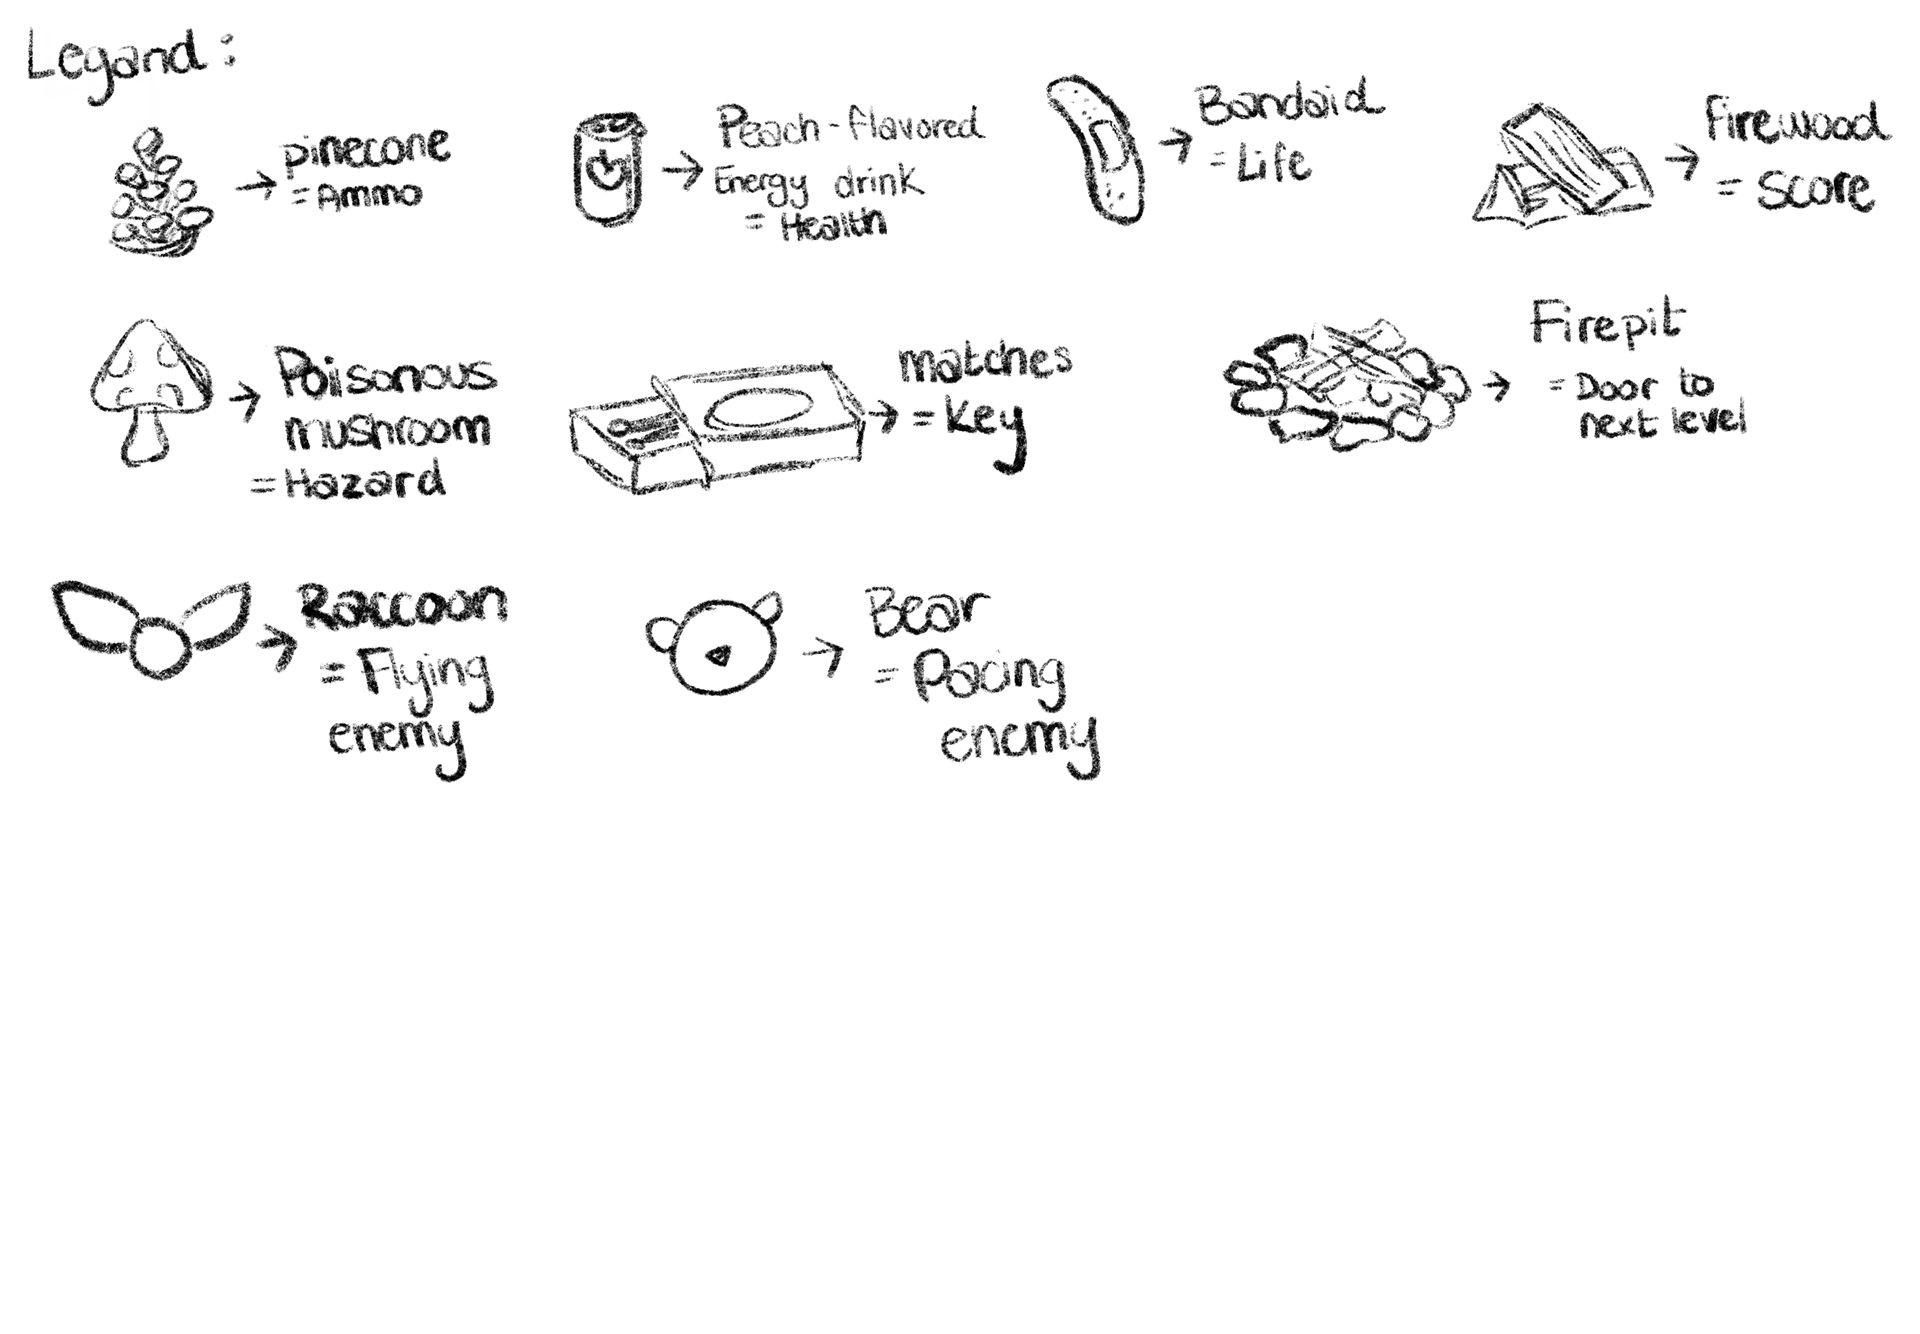 Legand :
pinecone
= Ammo
Peach-flavored
Energy drink
= Health
Bandaid
= Life
Firewood
= Score
Poisonous
mushroom
= Hazard
matches
= key
Firepit
= Door to
next level
Raccoon
= Flying
enemy
Bear
= Pacing
enemy